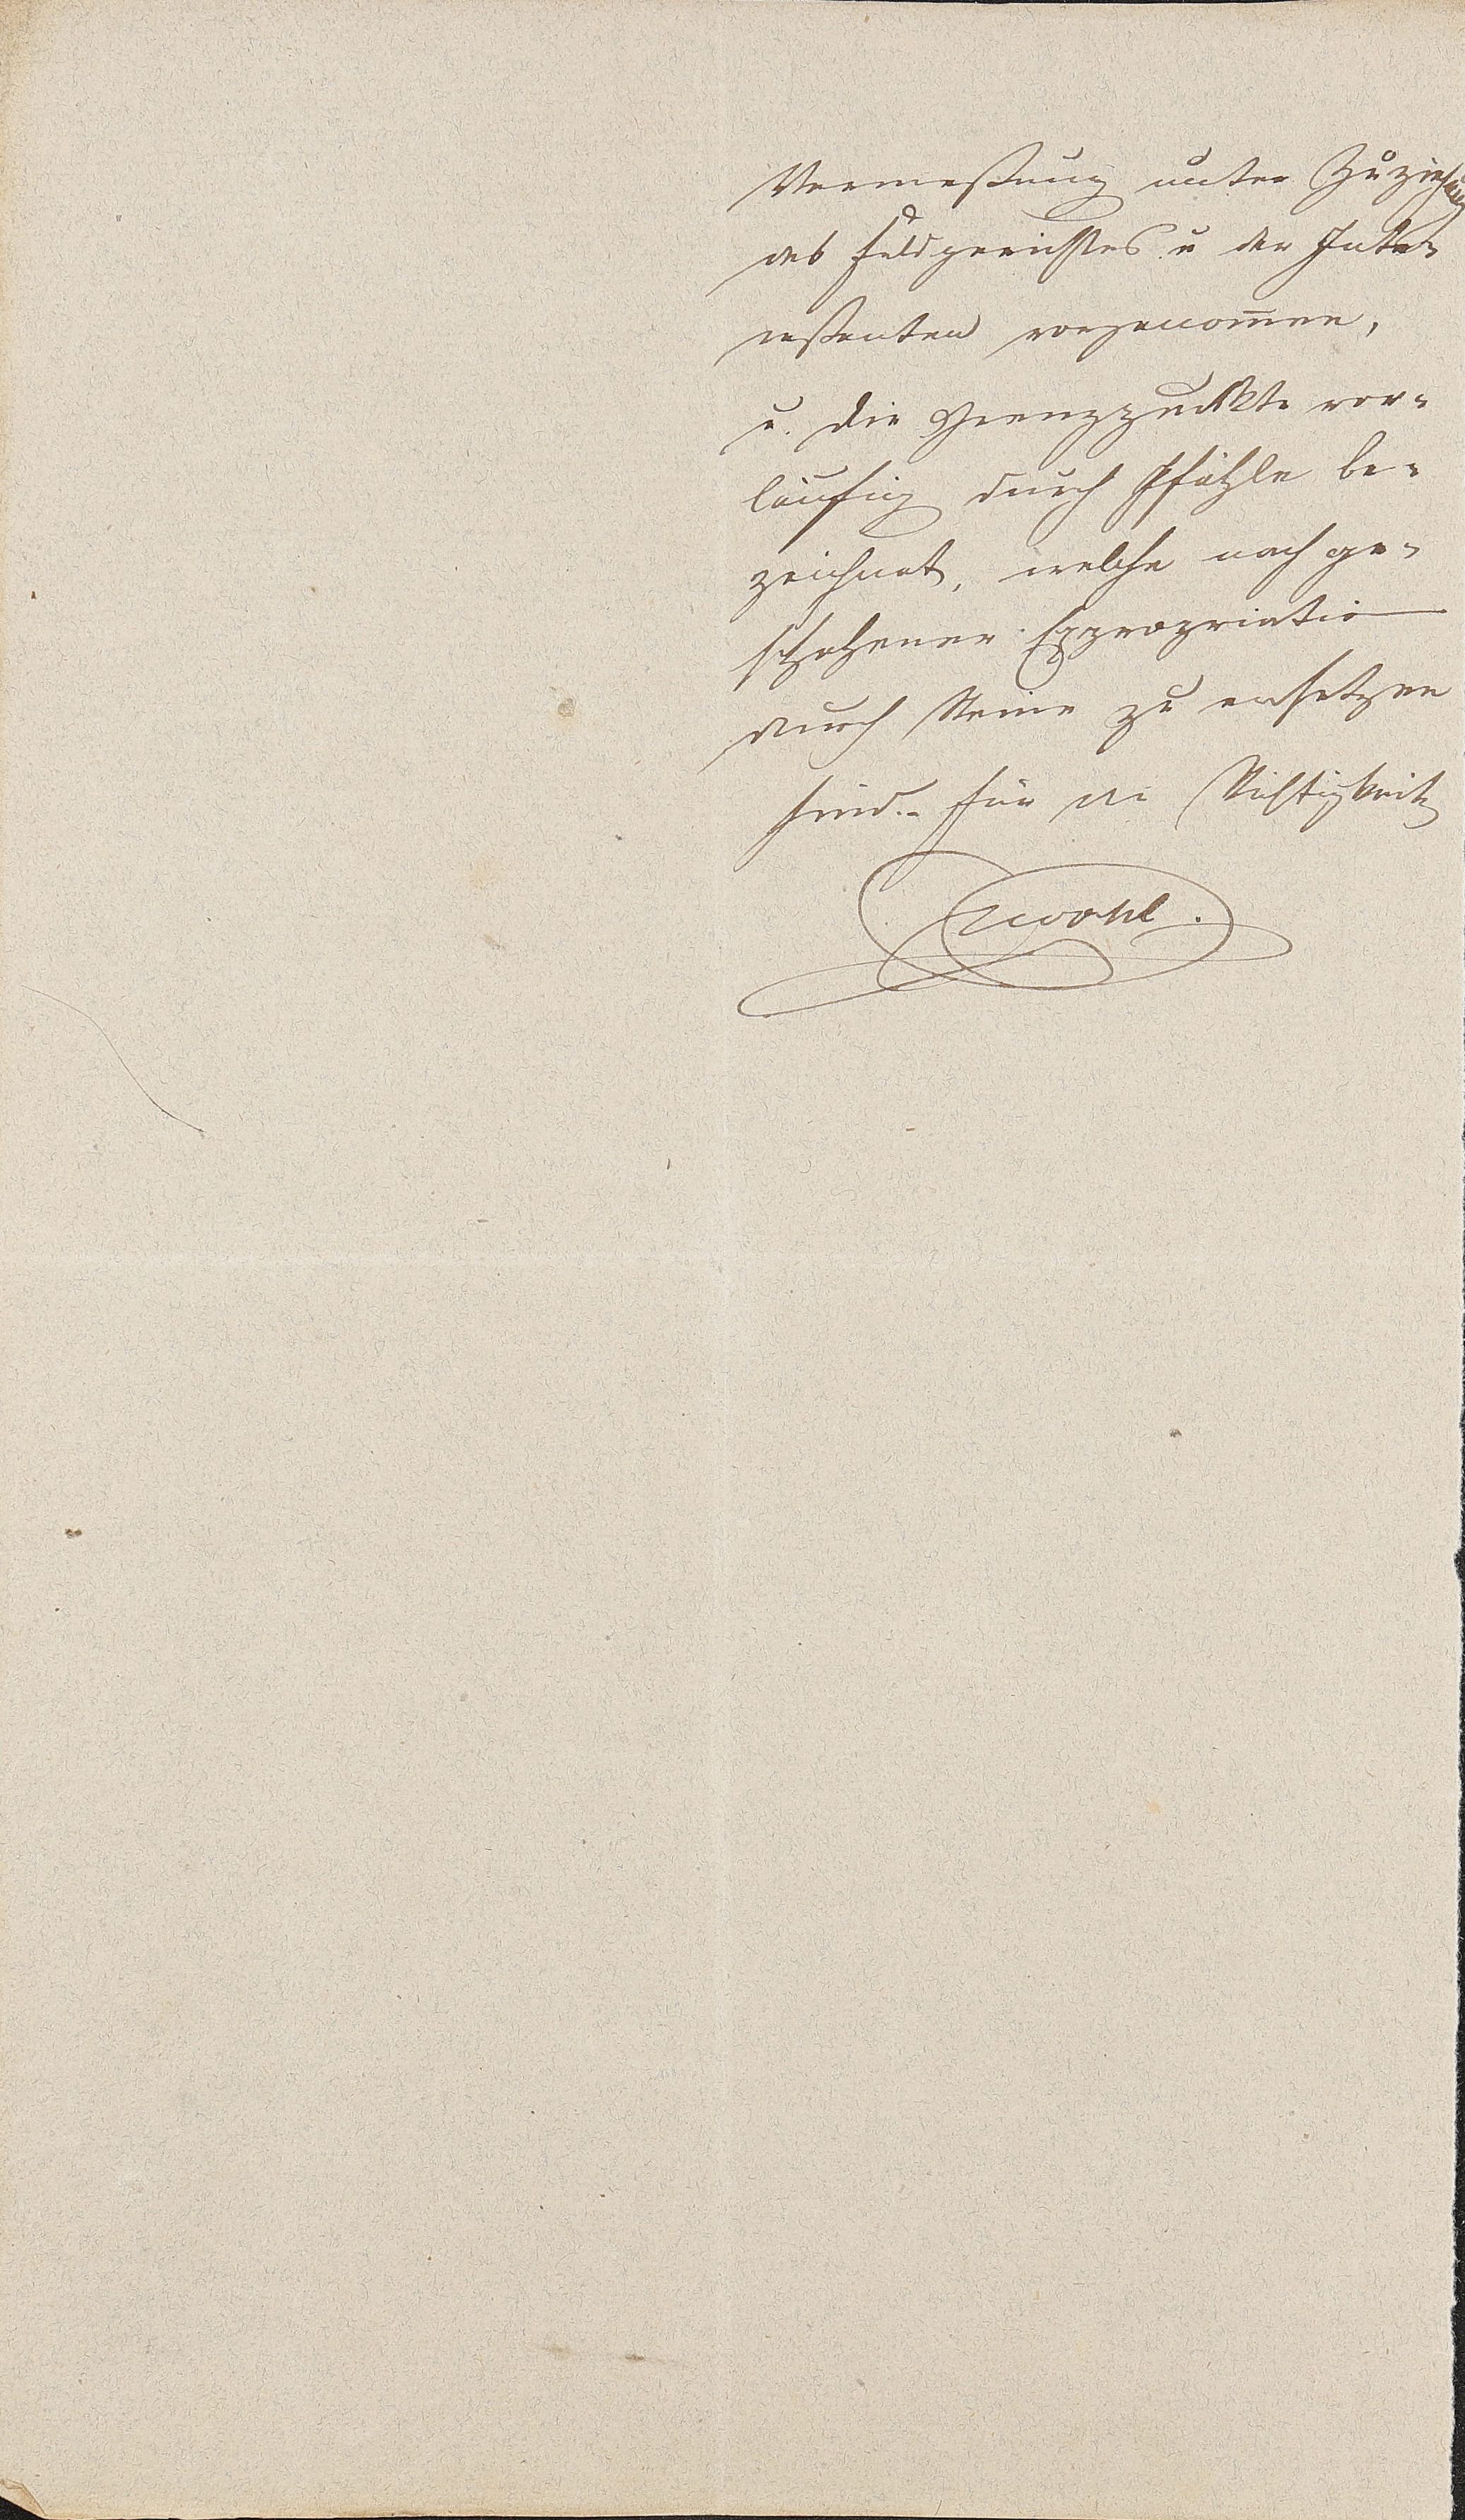 Vermeßung unter Zuziehung
des Feldgerichtes u der Inte-
reßenten vorgenom̅en,
u. die Grenzpunkte vor-
läufig durch Pfähle be-
zeichnet, welche nach ge-
schehener Expropriation
durch Steine zu ersetzen
sind.- Für die Richtigkeit